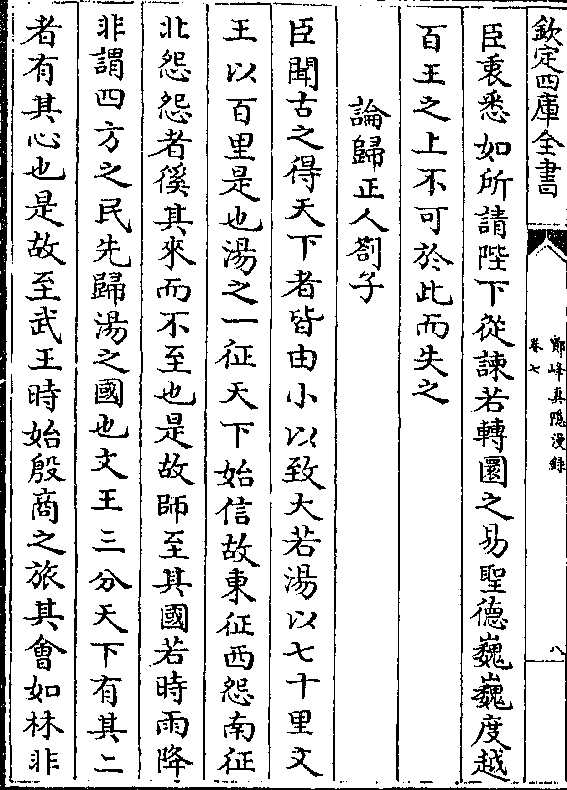 欽定四庫全書
鄮峰真隠漫録
卷七
八
臣衷悉如所請陛下從諫若轉圜之易聖德巍巍度越
百王之上不可於此而失之
論歸正人劄子
臣聞古之得天下者皆由小以致大若湯以七十里文
王以百里是也湯之一征天下始信故東征西怨南征
北怨怨者徯其來而不至也是故師至其國若時雨降
非謂四方之民先歸湯之國也文王三分天下有其二
者有其心也是故至武王時始殷商之旅其會如林非